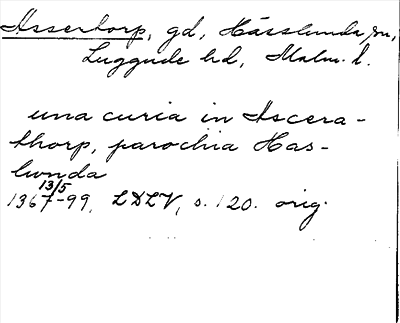 Assertorp, gd, Hässlunda sn,
Luggude hd, Malm. l.
una curia in Ascera-
thorp, parochia Has-
lunda
13/5
1367-99, LDLV, s. 120. orig.